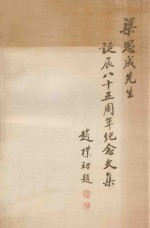 梁思成先生
诞辰八十五周年纪念文集
赵朴初题